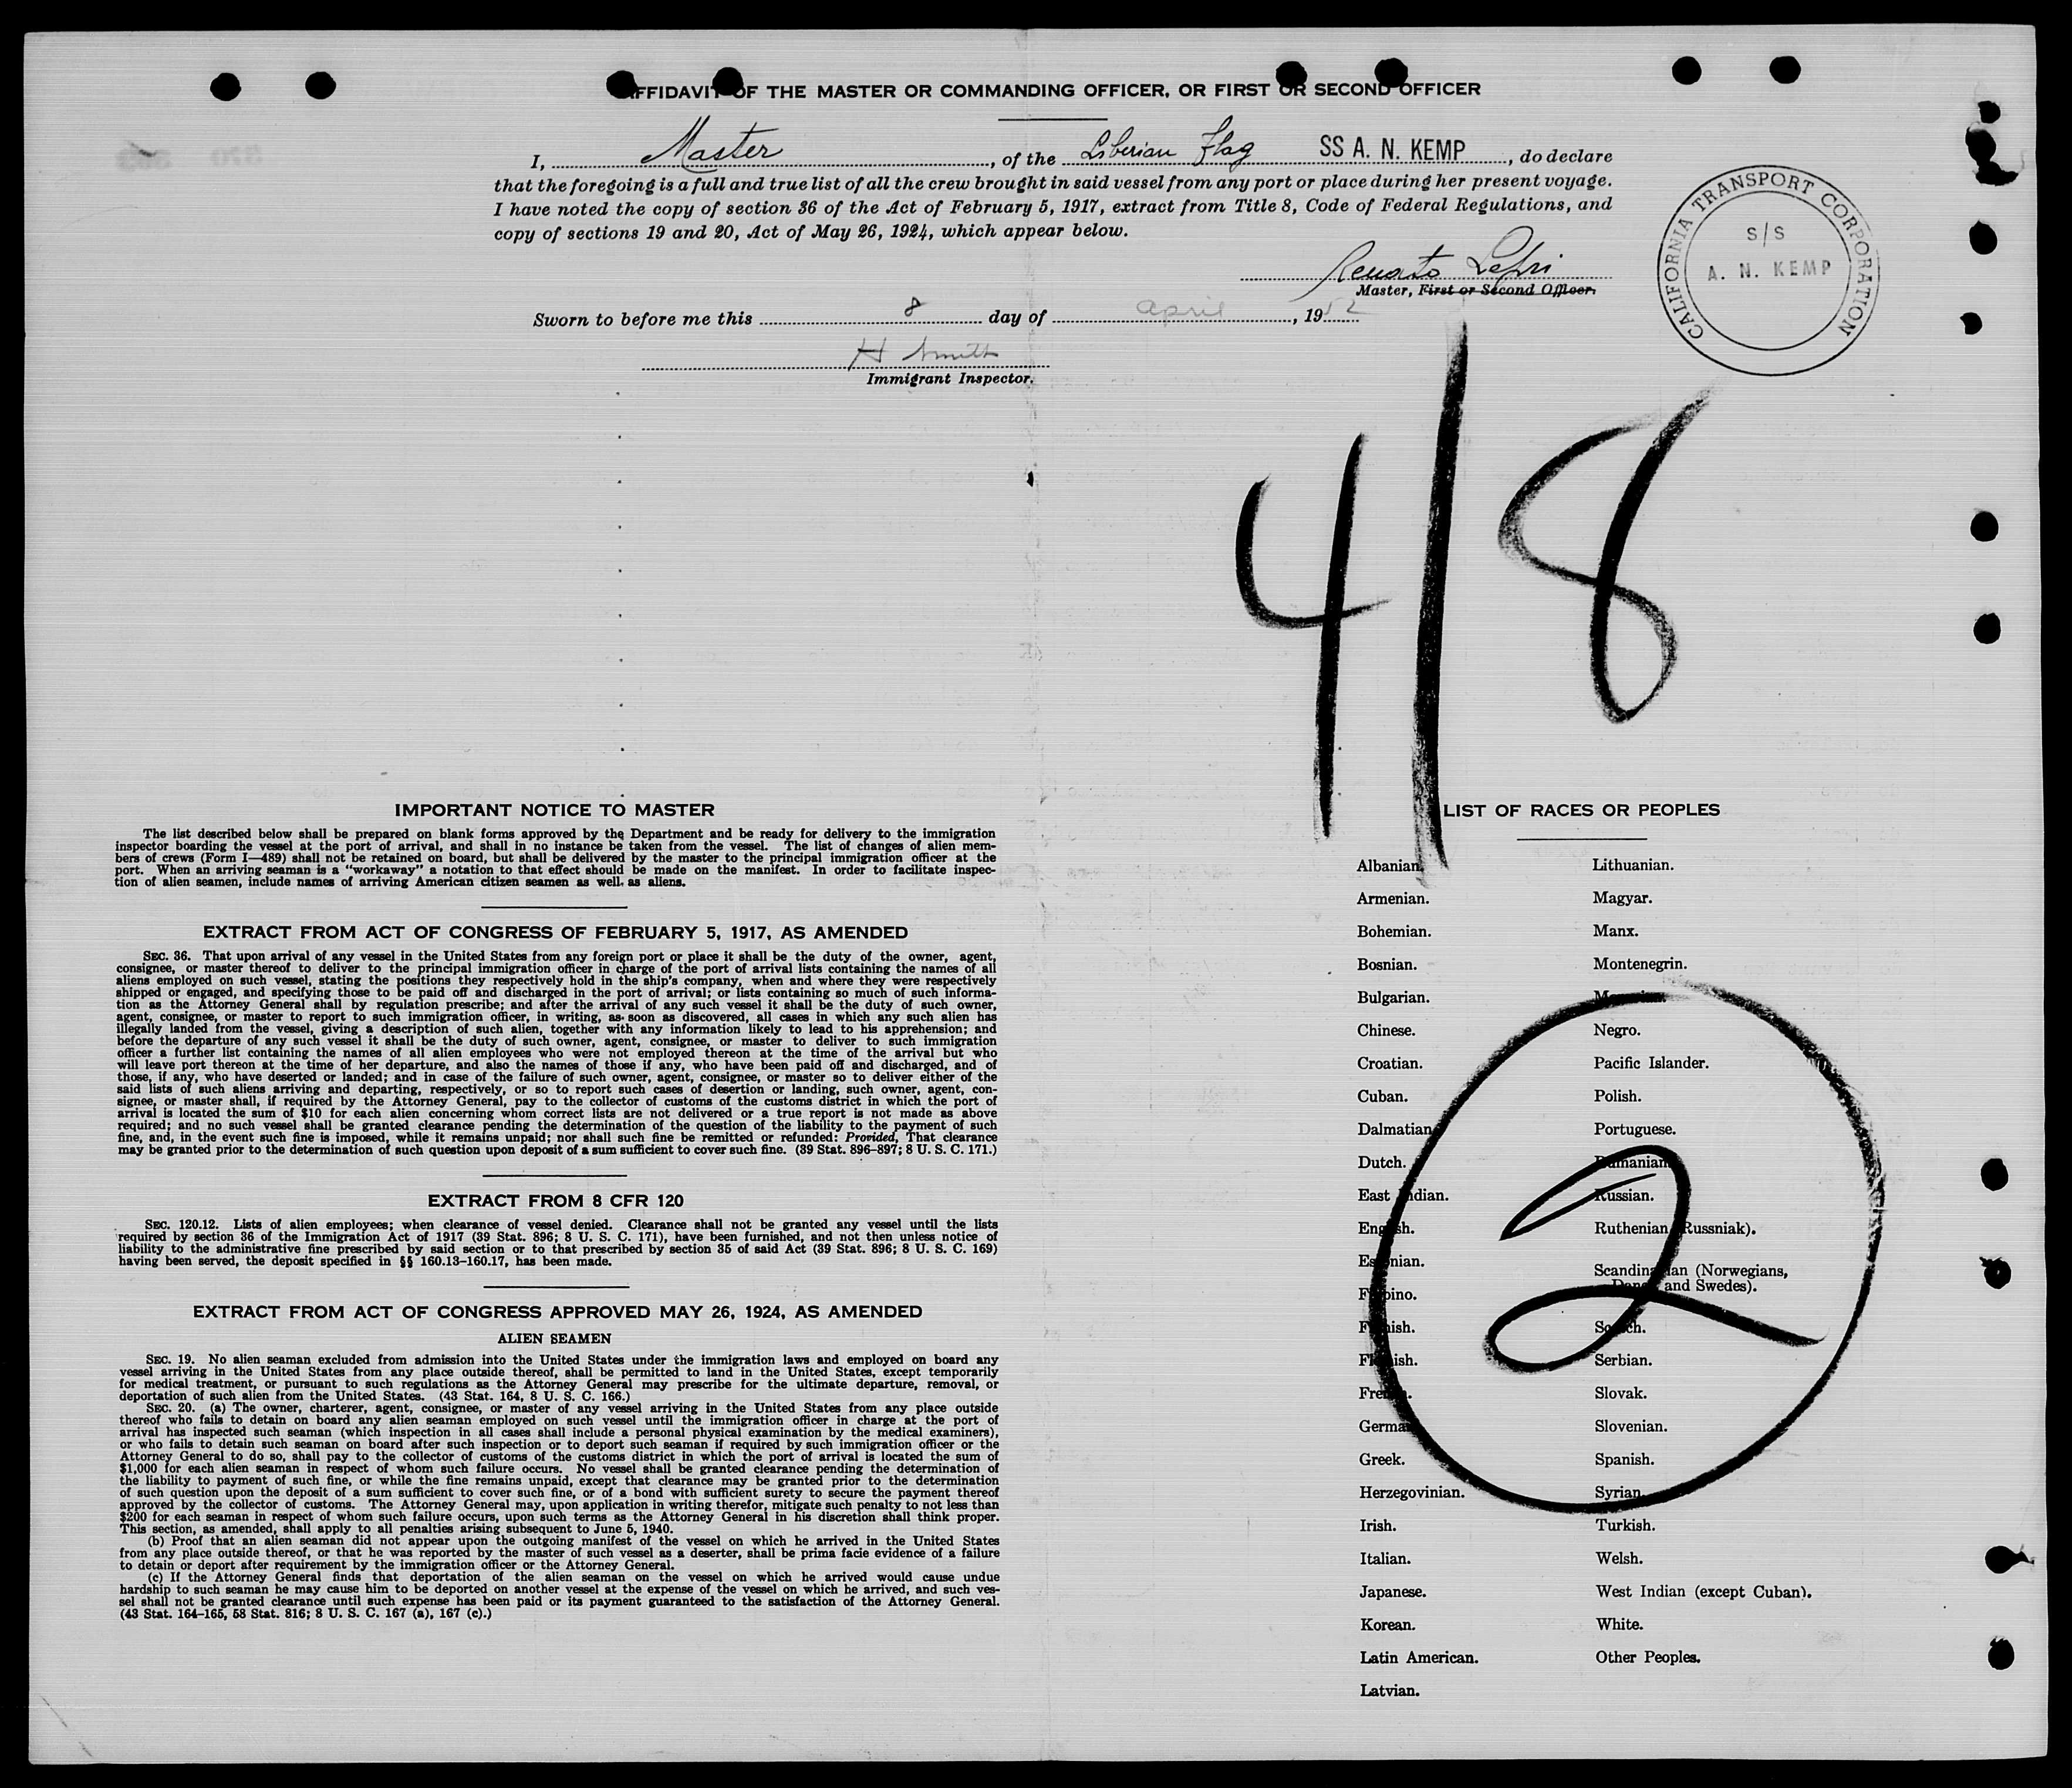 AFFIDAVIT OF THE MASTER OR COMMANDING OFFICER, OR FIRST OR SECOND OFFICER
I, Master, of the Liberian Flag SS A. N. KEMP, do declare
that the foregoing is a full and true list of all the crew brought in said vessel from any port or place during her present voyage.
I have noted the copy of section 36 of the Act of February 5, 1917, extract from Title 8, Code of Federal Regulations, and
copy of sections 19 and 20, Act of May 26, 1924, which appear below.
CALIFORNIA TRANSPORT CORPORATION
S/S
A. N. KEMP
Renato Lepri
Master, First or Second Officer.
Sworn to before me this 8 day of april, 1952
H Smith
Immigrant Inspector.
4/8
IMPORTANT NOTICE TO MASTER
The list described below shall be prepared on blank forms approved by the Department and be ready for delivery to the immigration
inspector boarding the vessel at the port of arrival, and shall in no instance be taken from the vessel. The list of changes of alien mem-
bers of crews (Form I—489) shall not be retained on board, but shall be delivered by the master to the principal immigration officer at the
port. When an arriving seaman is a "workaway" a notation to that effect should be made on the manifest. In order to facilitate inspec-
tion of alien seamen, include names of arriving American citizen seamen as well as aliens.
EXTRACT FROM ACT OF CONGRESS OF FEBRUARY 5, 1917, AS AMENDED
SEC. 36. That upon arrival of any vessel in the United States from any foreign port or place it shall be the duty of the owner, agent,
consignee, or master thereof to deliver to the principal immigration officer in charge of the port of arrival lists containing the names of all
aliens employed on such vessel, stating the positions they respectively hold in the ship's company, when and where they were respectively
shipped or engaged, and specifying those to be paid off and discharged in the port of arrival; or lists containing so much of such informa-
tion as the Attorney General shall by regulation prescribe; and after the arrival of any such vessel it shall be the duty of such owner,
agent, consignee, or master to report to such immigration officer, in writing, as soon as discovered, all cases in which any such alien has
illegally landed from the vessel, giving a description of such alien, together with any information likely to lead to his apprehension; and
before the departure of any such vessel it shall be the duty of such owner, agent, consignee, or master to deliver to such immigration
officer a further list containing the names of all alien employees who were not employed thereon at the time of the arrival but who
will leave port thereon at the time of her departure, and also the names of those if any, who have been paid off and discharged, and of
those, if any, who have deserted or landed; and in case of the failure of such owner, agent, consignee, or master so to deliver either of the
said lists of such aliens arriving and departing, respectively, or so to report such cases of desertion or landing, such owner, agent, con-
signee, or master shall, if required by the Attorney General, pay to the collector of customs of the customs district in which the port of
arrival is located the sum of $10 for each alien concerning whom correct lists are not delivered or a true report is not made as above
required; and no such vessel shall be granted clearance pending the determination of the question of the liability to the payment of such
fine, and, in the event such fine is imposed, while it remains unpaid; nor shall such fine be remitted or refunded: Provided, That clearance
may be granted prior to the determination of such question upon deposit of a sum sufficient to cover such fine. (39 Stat. 896-897; 8 U. S. C. 171.)
EXTRACT FROM 8 CFR 120
SEC. 120.12. Lists of alien employees; when clearance of vessel denied. Clearance shall not be granted any vessel until the lists
required by section 36 of the Immigration Act of 1917 (39 Stat. 896; 8 U. S. C. 171), have been furnished, and not then unless notice of
liability to the administrative fine prescribed by said section or to that prescribed by section 35 of said Act (39 Stat. 896; 8 U. S. C. 169)
having been served, the deposit specified in §§ 160.13-160.17, has been made.
EXTRACT FROM ACT OF CONGRESS APPROVED MAY 26, 1924, AS AMENDED
ALIEN SEAMEN
SEC. 19. No alien seaman excluded from admission into the United States under the immigration laws and employed on board any
vessel arriving in the United States from any place outside thereof, shall be permitted to land in the United States, except temporarily
for medical treatment, or pursuant to such regulations as the Attorney General may prescribe for the ultimate departure, removal, or
deportation of such alien from the United States. (43 Stat. 164, 8 U. S. C. 166.)
SEC. 20. (a) The owner, charterer, agent, consignee, or master of any vessel arriving in the United States from any place outside
thereof who fails to detain on board any alien seaman employed on such vessel until the immigration officer in charge at the port of
arrival has inspected such seaman (which inspection in all cases shall include a personal physical examination by the medical examiners),
or who fails to detain such seaman on board after such inspection or to deport such seaman if required by such immigration officer or the
Attorney General to do so, shall pay to the collector of customs of the customs district in which the port of arrival is located the sum of
$1,000 for each alien seaman in respect of whom such failure occurs. No vessel shall be granted clearance pending the determination of
the liability to payment of such fine, or while the fine remains unpaid, except that clearance may be granted prior to the determination
of such question upon the deposit of a sum sufficient to cover such fine, or of a bond with sufficient surety to secure the payment thereof
approved by the collector of customs. The Attorney General may, upon application in writing therefor, mitigate such penalty to not less than
$200 for each seaman in respect of whom such failure occurs, upon such terms as the Attorney General in his discretion shall think proper.
This section, as amended, shall apply to all penalties arising subsequent to June 5, 1940.
(b) Proof that an alien seaman did not appear upon the outgoing manifest of the vessel on which he arrived in the United States
from any place outside thereof, or that he was reported by the master of such vessel as a deserter, shall be prima facie evidence of a failure
to detain or deport after requirement by the immigration officer or the Attorney General.
(c) If the Attorney General finds that deportation of the alien seaman on the vessel on which he arrived would cause undue
hardship to such seaman he may cause him to be deported on another vessel at the expense of the vessel on which he arrived, and such ves-
sel shall not be granted clearance until such expense has been paid or its payment guaranteed to the satisfaction of the Attorney General.
(43 Stat. 164-165, 58 Stat. 816; 8 U. S. C. 167 (a), 167 (c).)
LIST OF RACES OR PEOPLES
Albanian.
Armenian.
Bohemian.
Bosnian.
Bulgarian.
Chinese.
Croatian.
Cuban.
Dalmatian.
Dutch.
East Indian.
English.
Estonian.
Filipino.
Finnish.
Flemish.
French.
German.
Greek.
Herzegovinian.
Irish.
Italian.
Japanese.
Korean.
Latin American.
Latvian.
Lithuanian.
Magyar.
Manx.
Montenegrin.
Negro.
Pacific Islander.
Polish.
Portuguese.
Rumanian.
Russian.
Ruthenian (Russniak).
Scandinavian (Norwegians,
Danes and Swedes).
Scotch.
Serbian.
Slovak.
Slovenian.
Spanish.
Syrian.
Turkish.
Welsh.
West Indian (except Cuban).
White.
Other Peoples.
2